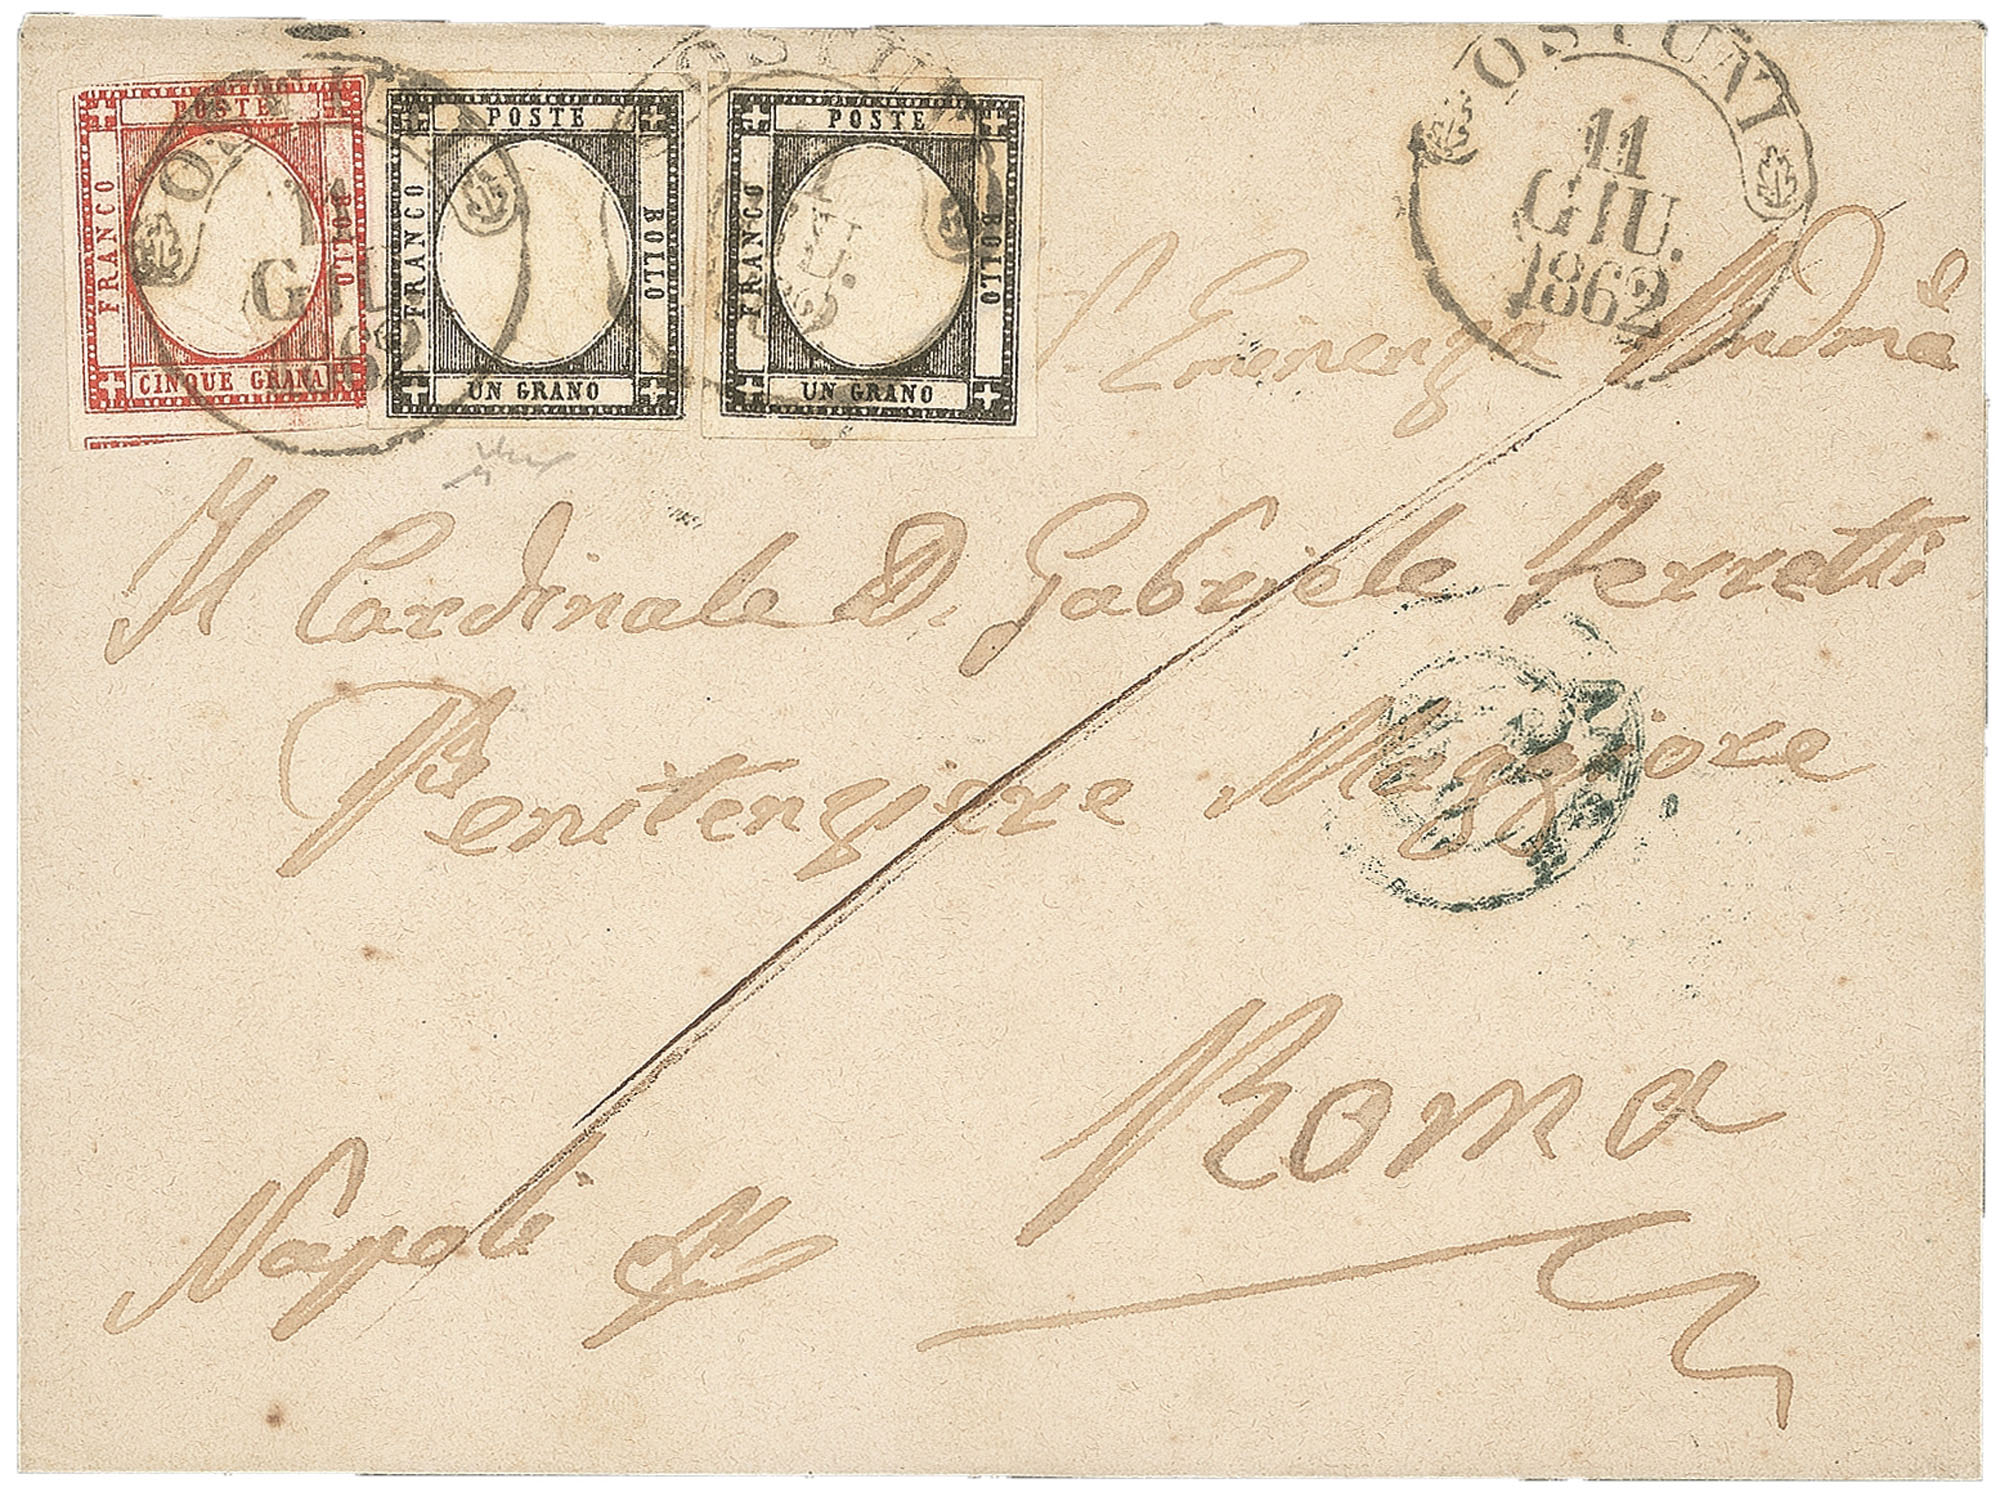 POSTE
FRANCO
BOLLO
CINQUE GRANA
POSTE
FRANCO
BOLLO
UN GRANO
POSTE
FRANCO
BOLLO
UN GRANO
OSTUNI
11
GIU.
1862
Eminenza
Il Cardinale D. Gabriele Ferretti
Penitenziere Maggiore
Napoli
Roma